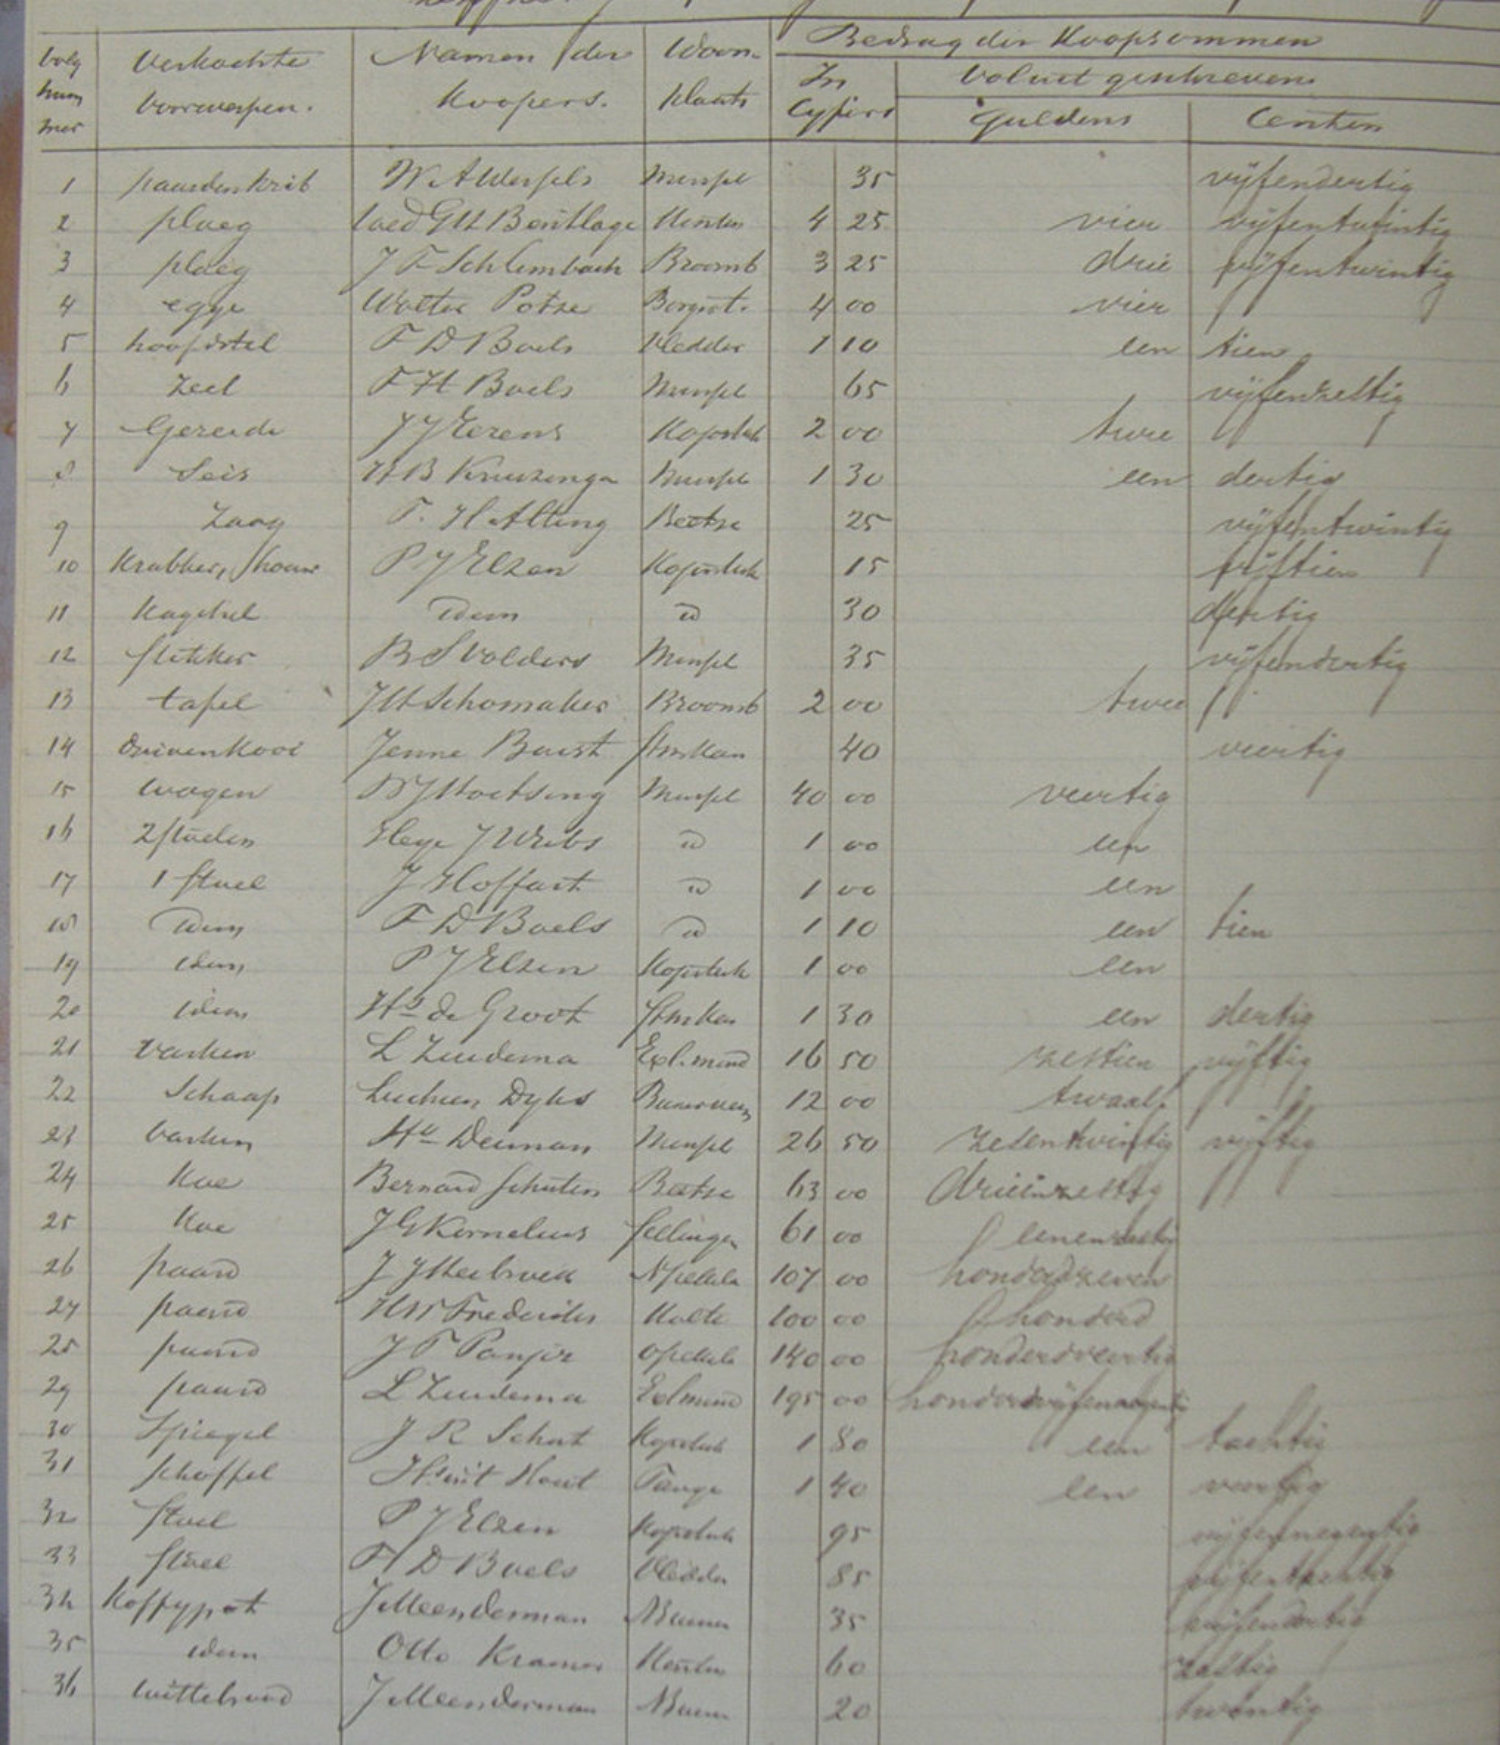 Volg num mer | Verkochte Voorwerpen. | Namen der Koopers. | Woon- plaats | Bedrag der Koopsommen
In Cyfers | Voluit geschreven
Guldens | Centen
1 paardenkrib W. A Wessels Munpl 35 vijfendertig
2 ploeg Gt Bentlage 4 25 vier vijfentwintig
3 ploeg J F Schlimbach Broomb 3 25 drie vijfentwintig
4 egge Wolter Potze 4 00 vier
5 hoofdstel F D Boels Vledder 1 10 een tien
6 Zeel F H Boels Munpl 65 vijfenzestig
7 Gereide J J Eerens 2 00 twee
8 Seis H B Kruizenga Munpl 1 30 een dertig
9 Zaag F. H Alting Beetse 25 vijfentwintig
10 Krabber, P J Elzen 15 vijftien
11 Kagchel idem id 30 dertig
12 B S Volders Munpl 35 vijfendertig
13 tafel J H Schomaker Broomb 2 00 twee
14 duivenkooi Jenne Buist 40 veertig
15 wagen Munpl 40 00 veertig
16 2 stoelen J Wubs id 1 00 een
17 1 stoel J Hoffart id 1 00 een
18 idem F D Boels id 1 10 een tien
19 idem P J Elzen 1 00 een
20 idem Hs de Groot 1 30 een dertig
21 Varken L Zuidema Exl.mond 16 50 zestien vijftig
22 Schaap Luchien Dyks 12 00 twaalf
23 Varken Munpl 26 50 zesentwintig vijftig
24 Koe Bernard Schuten Beetse 63 00 drieenzestig
25 Koe J G Kornelius Sellingen 61 00 eenenzestig
26 paard N Pekela 107 00 honderdzeven
27 paard Frederiks Kolte 100 00 honderd
28 paard J F Panjer O Pekela 140 00 honderdveertig
29 paard L Zuidema Exlmond 195 00 honderdvijfennegentig
30 Spiegel J R Schut 1 80 een tachtig
31 schoffel Hout Tange 1 40 een veertig
32 Stoel P J Elzen 95 vijfennegentig
33 Stoel F D Boels Vledder 85 vijfentachtig
34 Koffypot J Meenderman 35 vijfendertig
35 idem Otto Kramer 60 zestig
36 J Meenderman 20 twintig